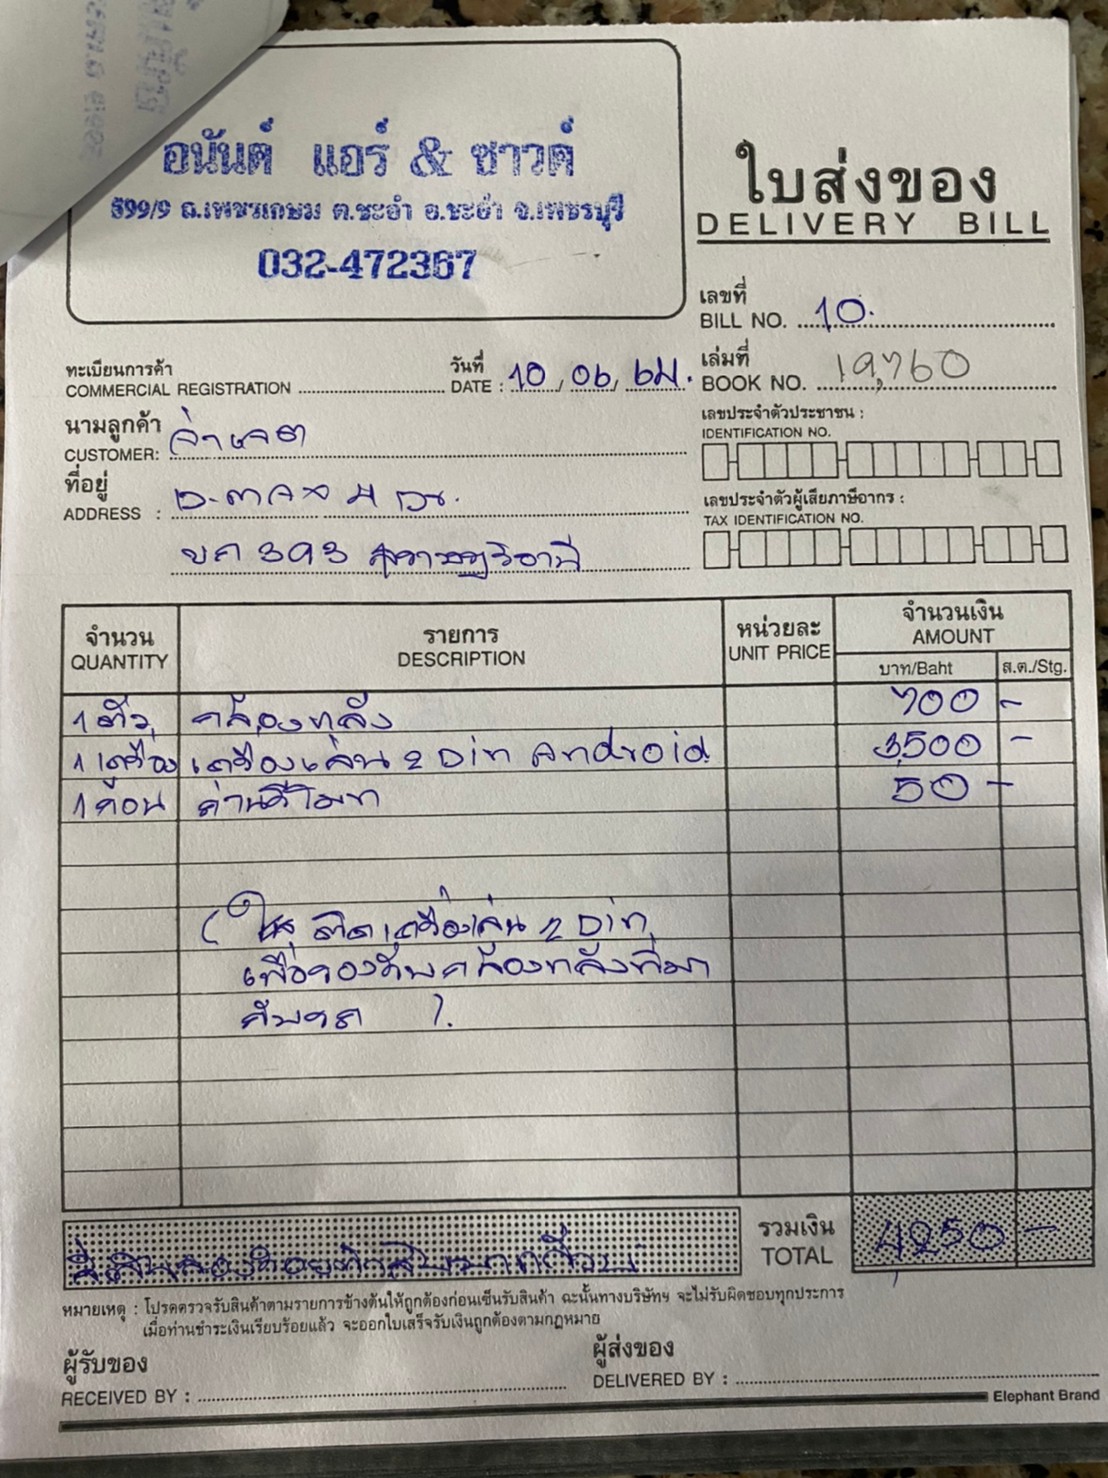 อนันต์ แอร์ & ซาวด์
599/9 ถ.เพชรเกษม ต.ชะอำ อ.ชะอำ จ.เพชรบุรี
032-472367
ใบส่งของ
DELIVERY BILL
เลขที่
BILL NO. 10.
ทะเบียนการค้า
COMMERCIAL REGISTRATION
วันที่
DATE : 10, 06, 64.
เล่มที่
BOOK NO. 19,760
นามลูกค้า
CUSTOMER:
ที่อยู่
ADDRESS :
ขค 393 สุราษฎร์ธานี
เลขประจำตัวประชาชน :
IDENTIFICATION NO.
เลขประจำตัวผู้เสียภาษีอากร :
TAX IDENTIFICATION NO.
จำนวน รายการ หน่วยละ จำนวนเงิน
QUANTITY DESCRIPTION UNIT PRICE AMOUNT
บาท/Baht ส.ต./Stg.
1 ตัว กล้องหลัง 700 -
1 เครื่อง เครื่องเล่น 2 Din Android 3,500 -
1 ก้อน ถ่านรีโมท 50 -
ติดเครื่องเล่น 2 Din
เพื่อรองรับกล้องหลังที่มา
กับรถ ).
รวมเงิน
TOTAL 4,250 -
สี่พันสองร้อยห้าสิบบาทถ้วน
หมายเหตุ : โปรดตรวจรับสินค้าตามรายการข้างต้นให้ถูกต้องก่อนเซ็นรับสินค้า ฉะนั้นทางบริษัทฯ จะไม่รับผิดชอบทุกประการ
เมื่อท่านชำระเงินเรียบร้อยแล้ว จะออกใบเสร็จรับเงินถูกต้องตามกฎหมาย
ผู้รับของ
RECEIVED BY :
ผู้ส่งของ
DELIVERED BY :
Elephant Brand